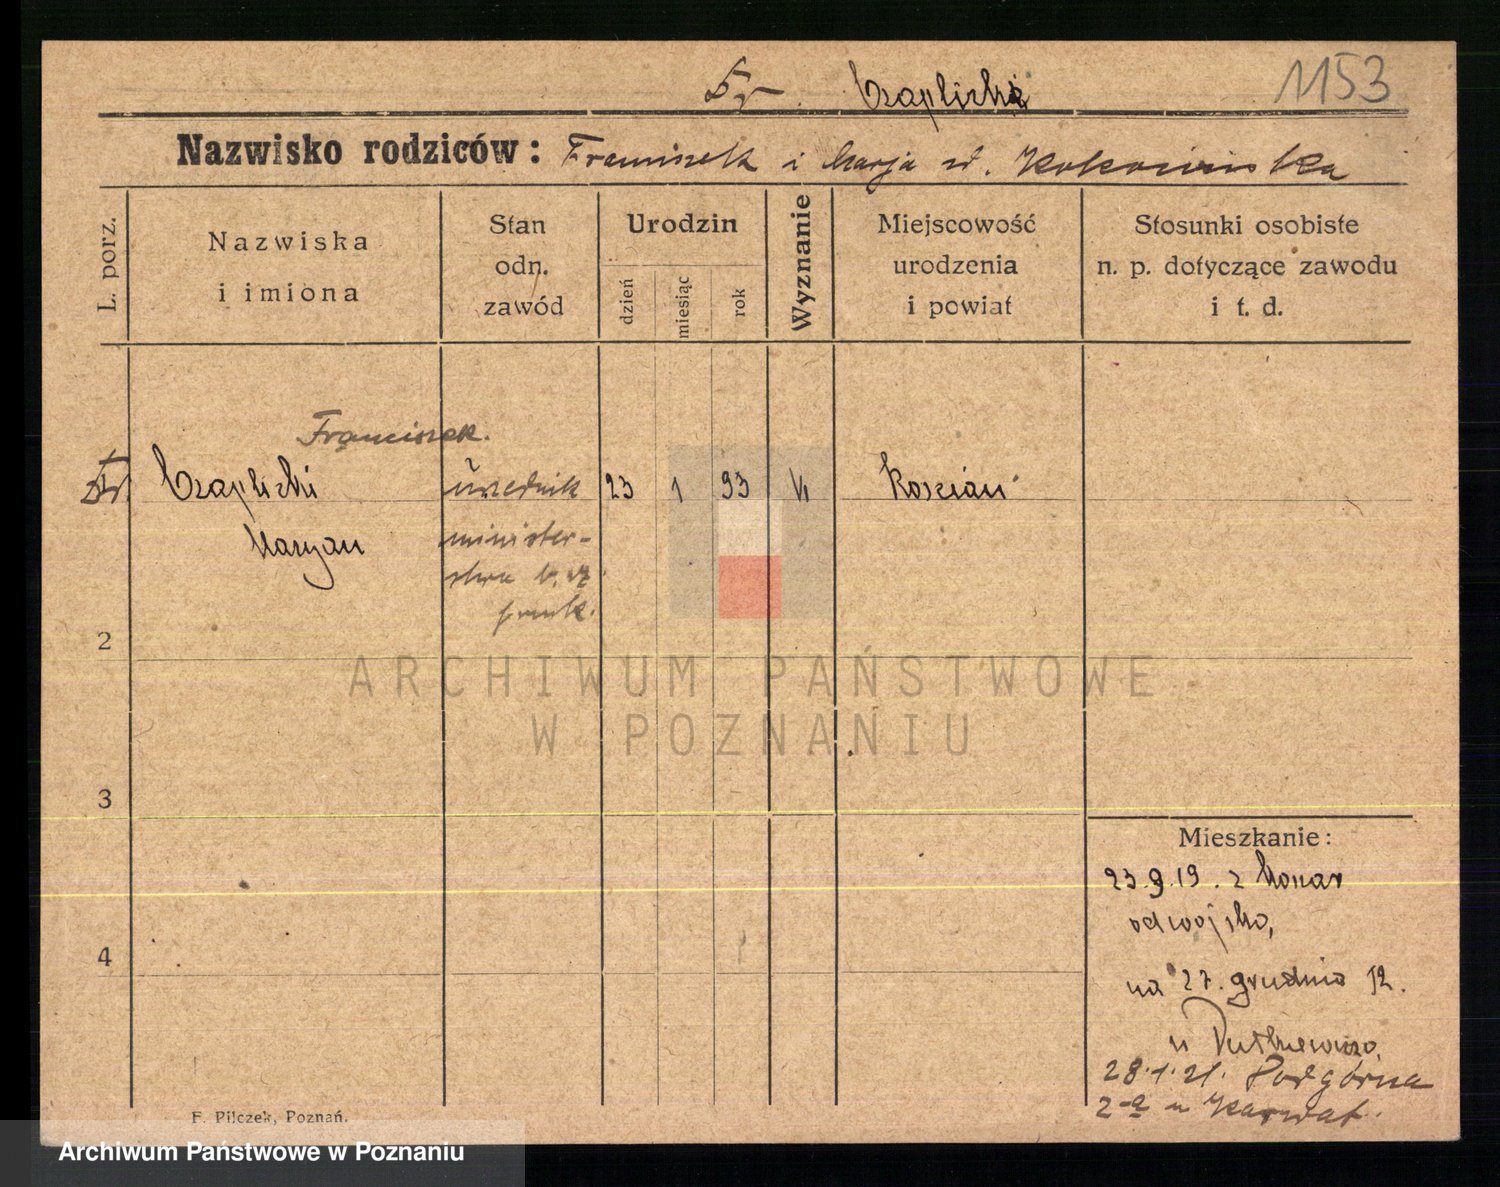 Dr Czaplicki
1153
Nazwisko rodziców: Franciszek i Marja
L. porz.
Nazwiska
i imiona
Stan
odn.
zawód
Urodzin
dzień
miesiąc
rok
Wyznanie
Miejscowość
urodzenia
i powiat
Stosunki osobiste
n. p. dotyczące zawodu
i t. d.
Franciszek.
Dr Czaplicki urzednik 23 1 93 Kościan
Maryan minister-
stwa b. dz
prusk.
2
ARCHIWUM PAŃSTWOWE
W POZNANIU
3
Mieszkanie:
23.9.19. z
od wojska,
4
na 27. grudnia 12.
28.1.21. Podgórna
2-a u Karwat.
F. Pilczek, Poznań.
Archiwum Państwowe w Poznaniu